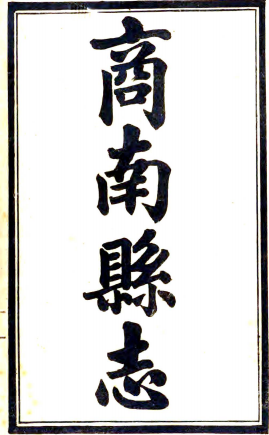 商南縣志